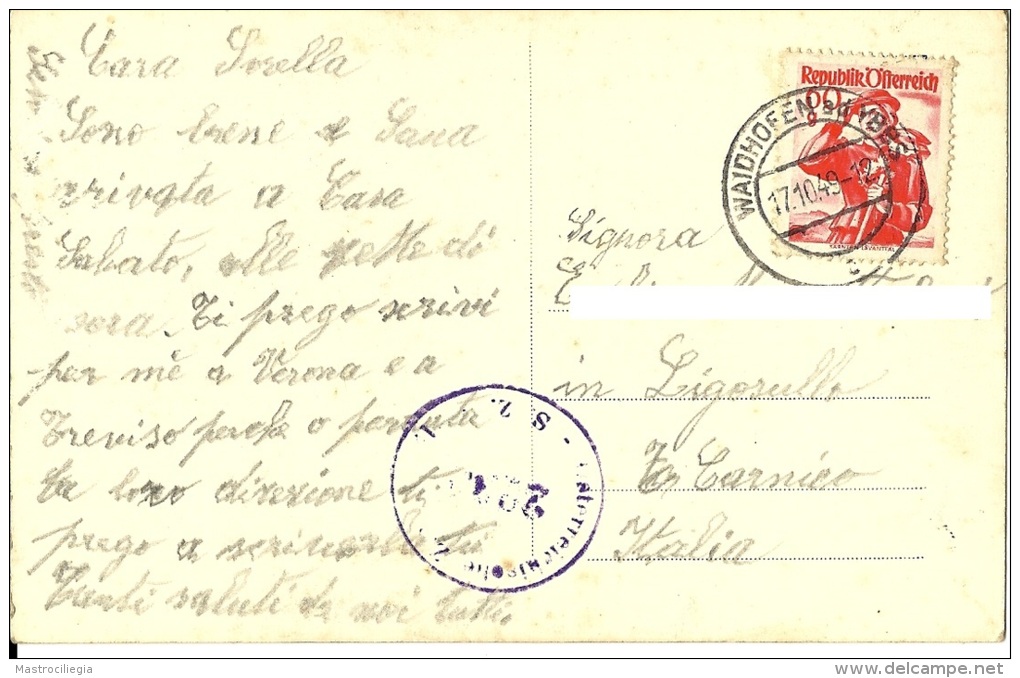 Cara Sorella
Sono bene e Sana
arivata a Casa
Sabato, alle sette di
sera. Ti prego scrivi
per me a Verona e a
Treviso perche o perduta
la loro direzione ti
prego a scriverla tu
Tanti saluti da noi tutti.
Republik Österreich
60 g
KÄRNTEN LAVANTTAL
WAIDHOFEN a d YBBS
17.10.49-12
c
Signora
in Ligosullo
Carnico
Italia
Österreichische
Mastrociliegia
www.delcampe.net